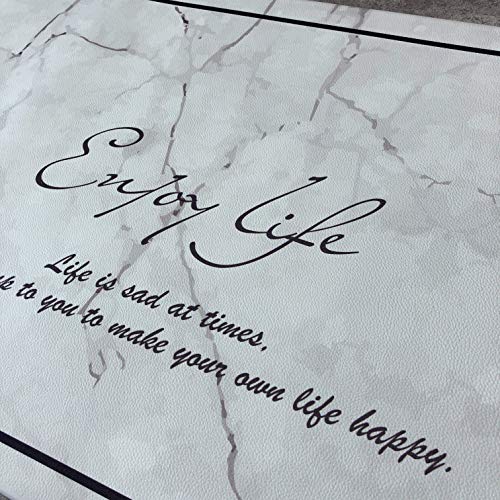 Enjoy life
Life is sad at times,
to you to make your own life happy.